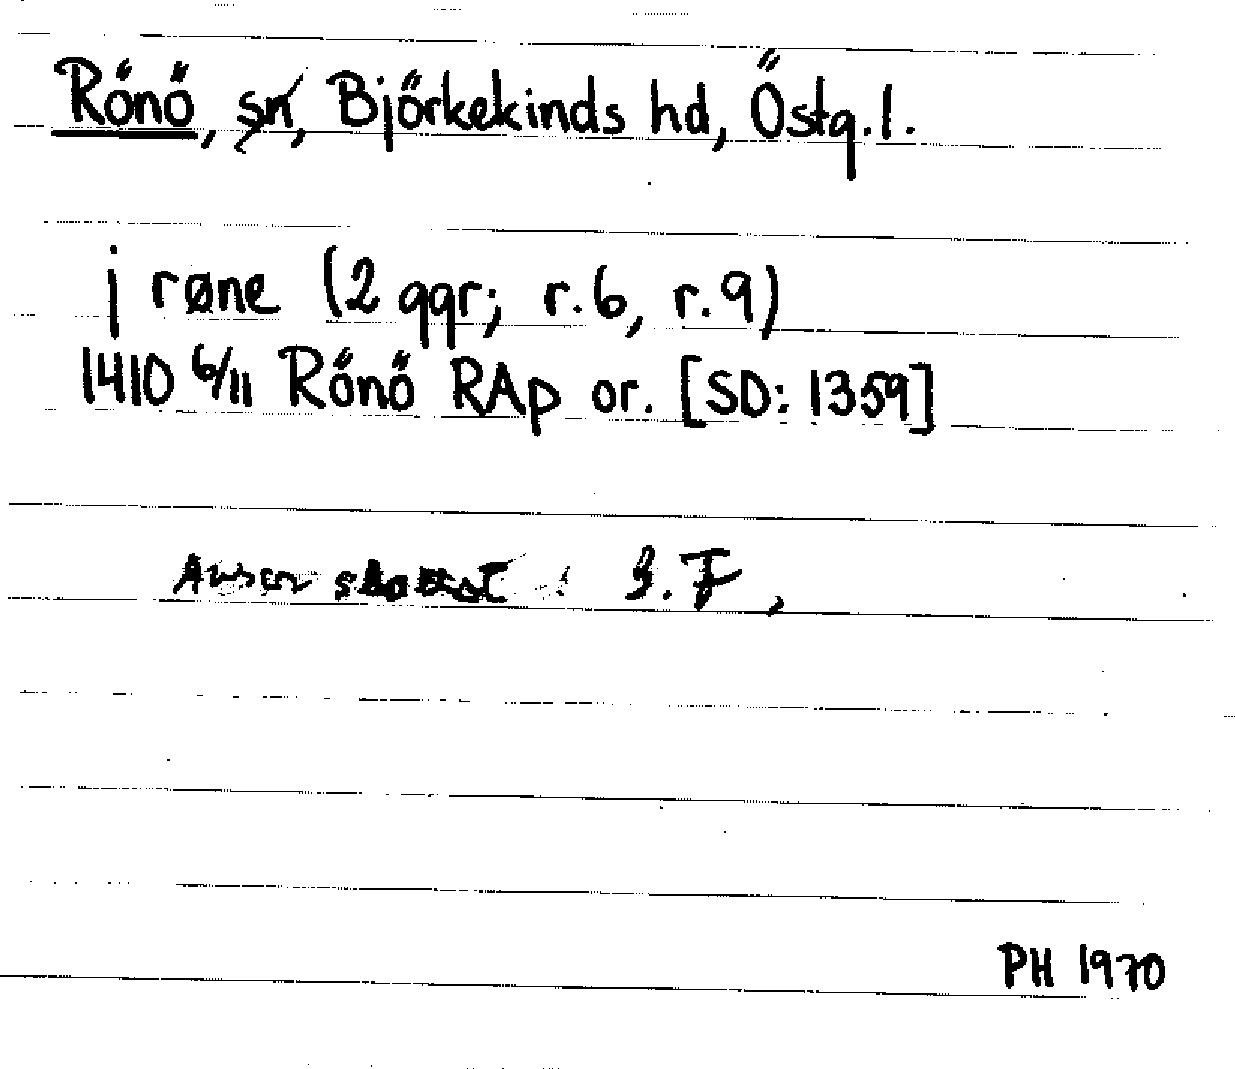 Rönö, sn, Björkekinds hd, Östg.l.
j røne (2 ggr; r.6, r.9)
1410 6/11 Rönö RAp or. [SD: 1359]
PH 1970